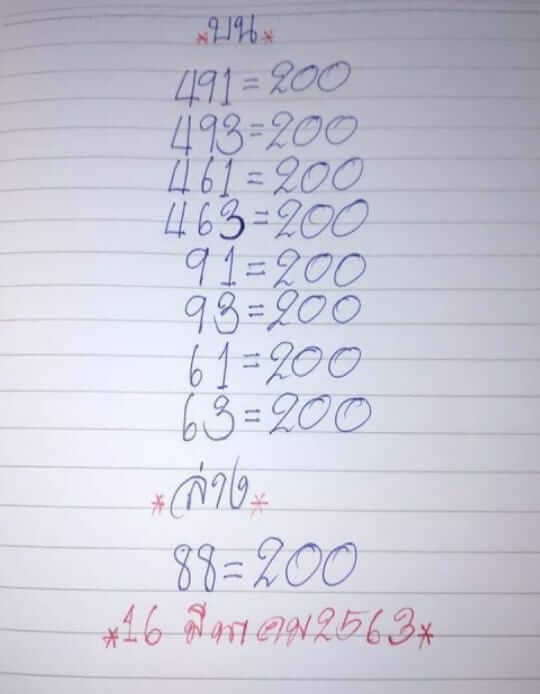 *บน*
491=200
493=200
461=200
463=200
91=200
93=200
61=200
63=200
*ล่าง*
88=200
*16 มีนาคม2563*